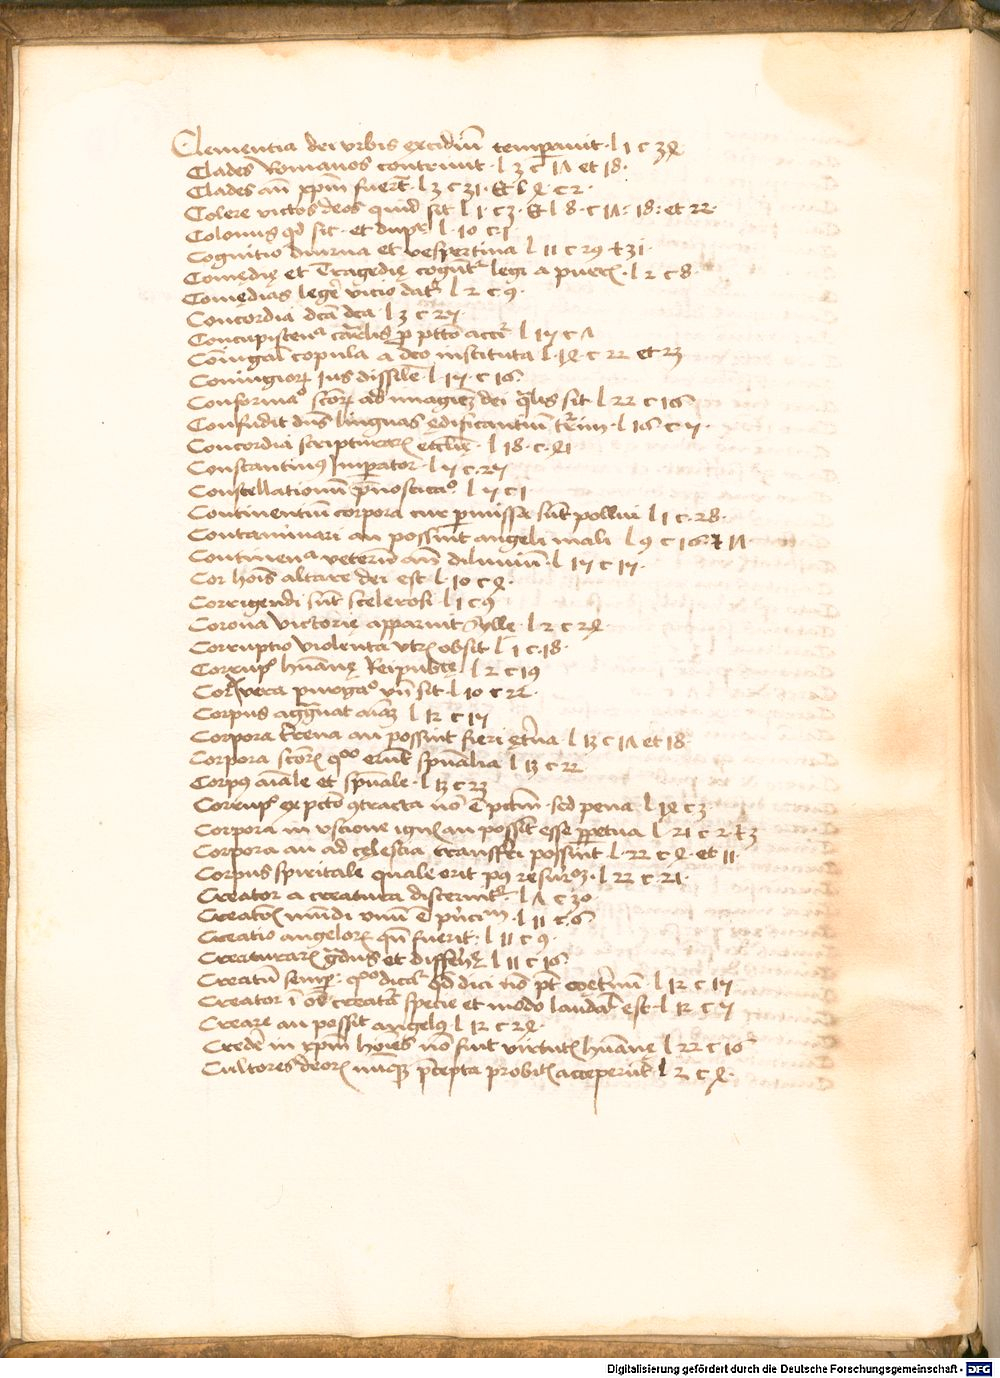 Clementia dei urbis excidiũ temperavit · l 1 c 34
Clades Romanos contriuit · l 3 c 17 et 18 ·
Clades añ xp̃m fuerũt · l 3 c 31 · Et l 4 · c 2 ·
Colere victos deos quid sit l 1 · c 3 · Et l 8 · c 17 : 18 : et 22 ·
Colonus qd sit · et l 10 c 1
Cognitio diurna et vespertina l 11 c 29 + 31 ·
Comedię et Tragedię legi a pueris · l 2 c 8
Comędias legere vicio datr̃ l 2 c 9 ·
Concordia dc̃a dea l 3 c 25 ·
l 15 c 7
Coniugał copula a deo instituta l · 14 · c 22 et 23
Coniugioꝝ ius dissilẽ · l 15 · c 16 ·
Conformaᵒ sc̃oꝝ ad imaginẽ dei q̃lis sit l 22 c 16
Confudit dñs linguas ędificantiũ l 16 c 5 ·
Concordia scripturaꝝ l 18 · c · 41
Constantinus Imperator · l 5 c · 25
Constellationũ p̃nosticaᵒ · l 5 c 1
Continentiũ corpora cur p̃missa sũt pollui l 1 c · 28 ·
Contaminari an possint angeli mali l 9 c 16 + 17 ·
Continenᵃ veterũ añ diluuiũ · l 15 c 15 ·
Cor hoĩs altare dei est l · 10 c 4 ·
Corrigendi sũt scelerosi l 1 c 9
Corona victorię apparuit Sylle · l 2 c 24 ·
Corruptio violenta utr̃ obsit l 1 c · 18 ·
Corrupᵒ hũanę Reipublicę l 2 c 19
Cordis vera purgaᵒ uñ sit · l 10 c 22 ·
Corpus aggrauat aĩaʒ l 12 c 15
Corpora terrena an possint fieri ęterna l 13 c 17 et 18 ·
Corpora sc̃oꝝ qᵒᵒ erũt spũalia l 13 c 22
Corpus aĩale et spũale · l 13 c 23
Corrupᵒ ex pc̃to ꝯtracta nõ ẽ pc̃tm̃ · sed pena l 14 c 3 ·
Corpora in ustione ignis an possĩt esse p̃petua l 21 c · 2 + 3
Corpora an ad cęlestia transferri possint l · 22 c 4 · et 11 ·
Corpus spiritale quale erit pꝰ resurr̃oʒ · l 22 c · 21 ·
Creator a creatura discernitr̃ · l 7 c 30
Creatoris mũdi unũ ẽ l 11 c · 6 ·
Creatio angeloꝝ qñ fuerit · l 11 c 9 ·
Creaturaꝝ g̃dus et differ̃ię l 11 c 16
Creatũ semper : qᵒᵒ dicatr̃ qd dici nõ põt coęternũ l 12 c 15
Creator ĩ oĩ creatã specie et modo laudãł est · l 12 c 5
Creare an possit angelus l 12 c 24 ·
Credere in xp̃m hoĩes nõ fuit virtutis hũanę l 22 c 10
Cultores deoꝝ nunq̃ʒ p̃cepta probitis acceperũt l 2 c 4 ·
Digitalisierung gefördert durch die Deutsche Forschungsgemeinschaft - DFG